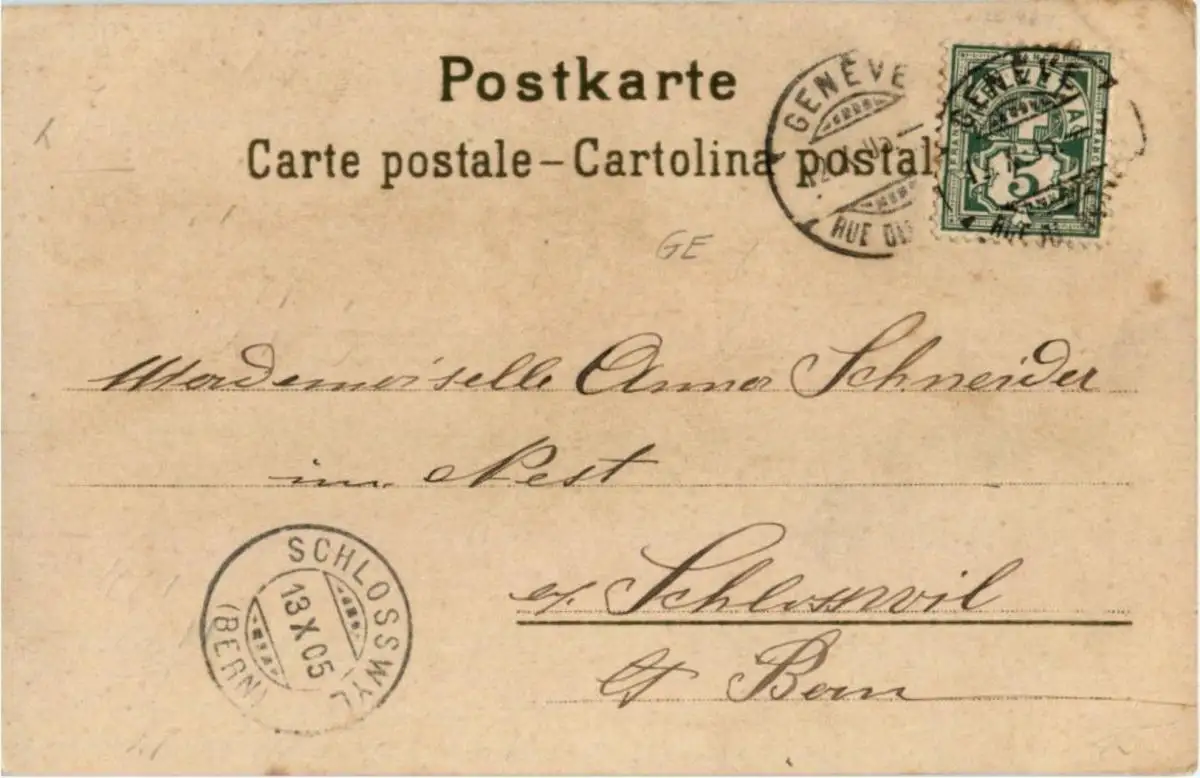 Postkarte
Carte postale – Cartolina postal
GENÈVE
12.X.05
RUE DU
GENÈVE
FRANCO
5
GE
Mademoiselle Anna Schneider
im Nest
Schlosswil
Kt Bern
SCHLOSSWYL
13 X 05
(BERN)